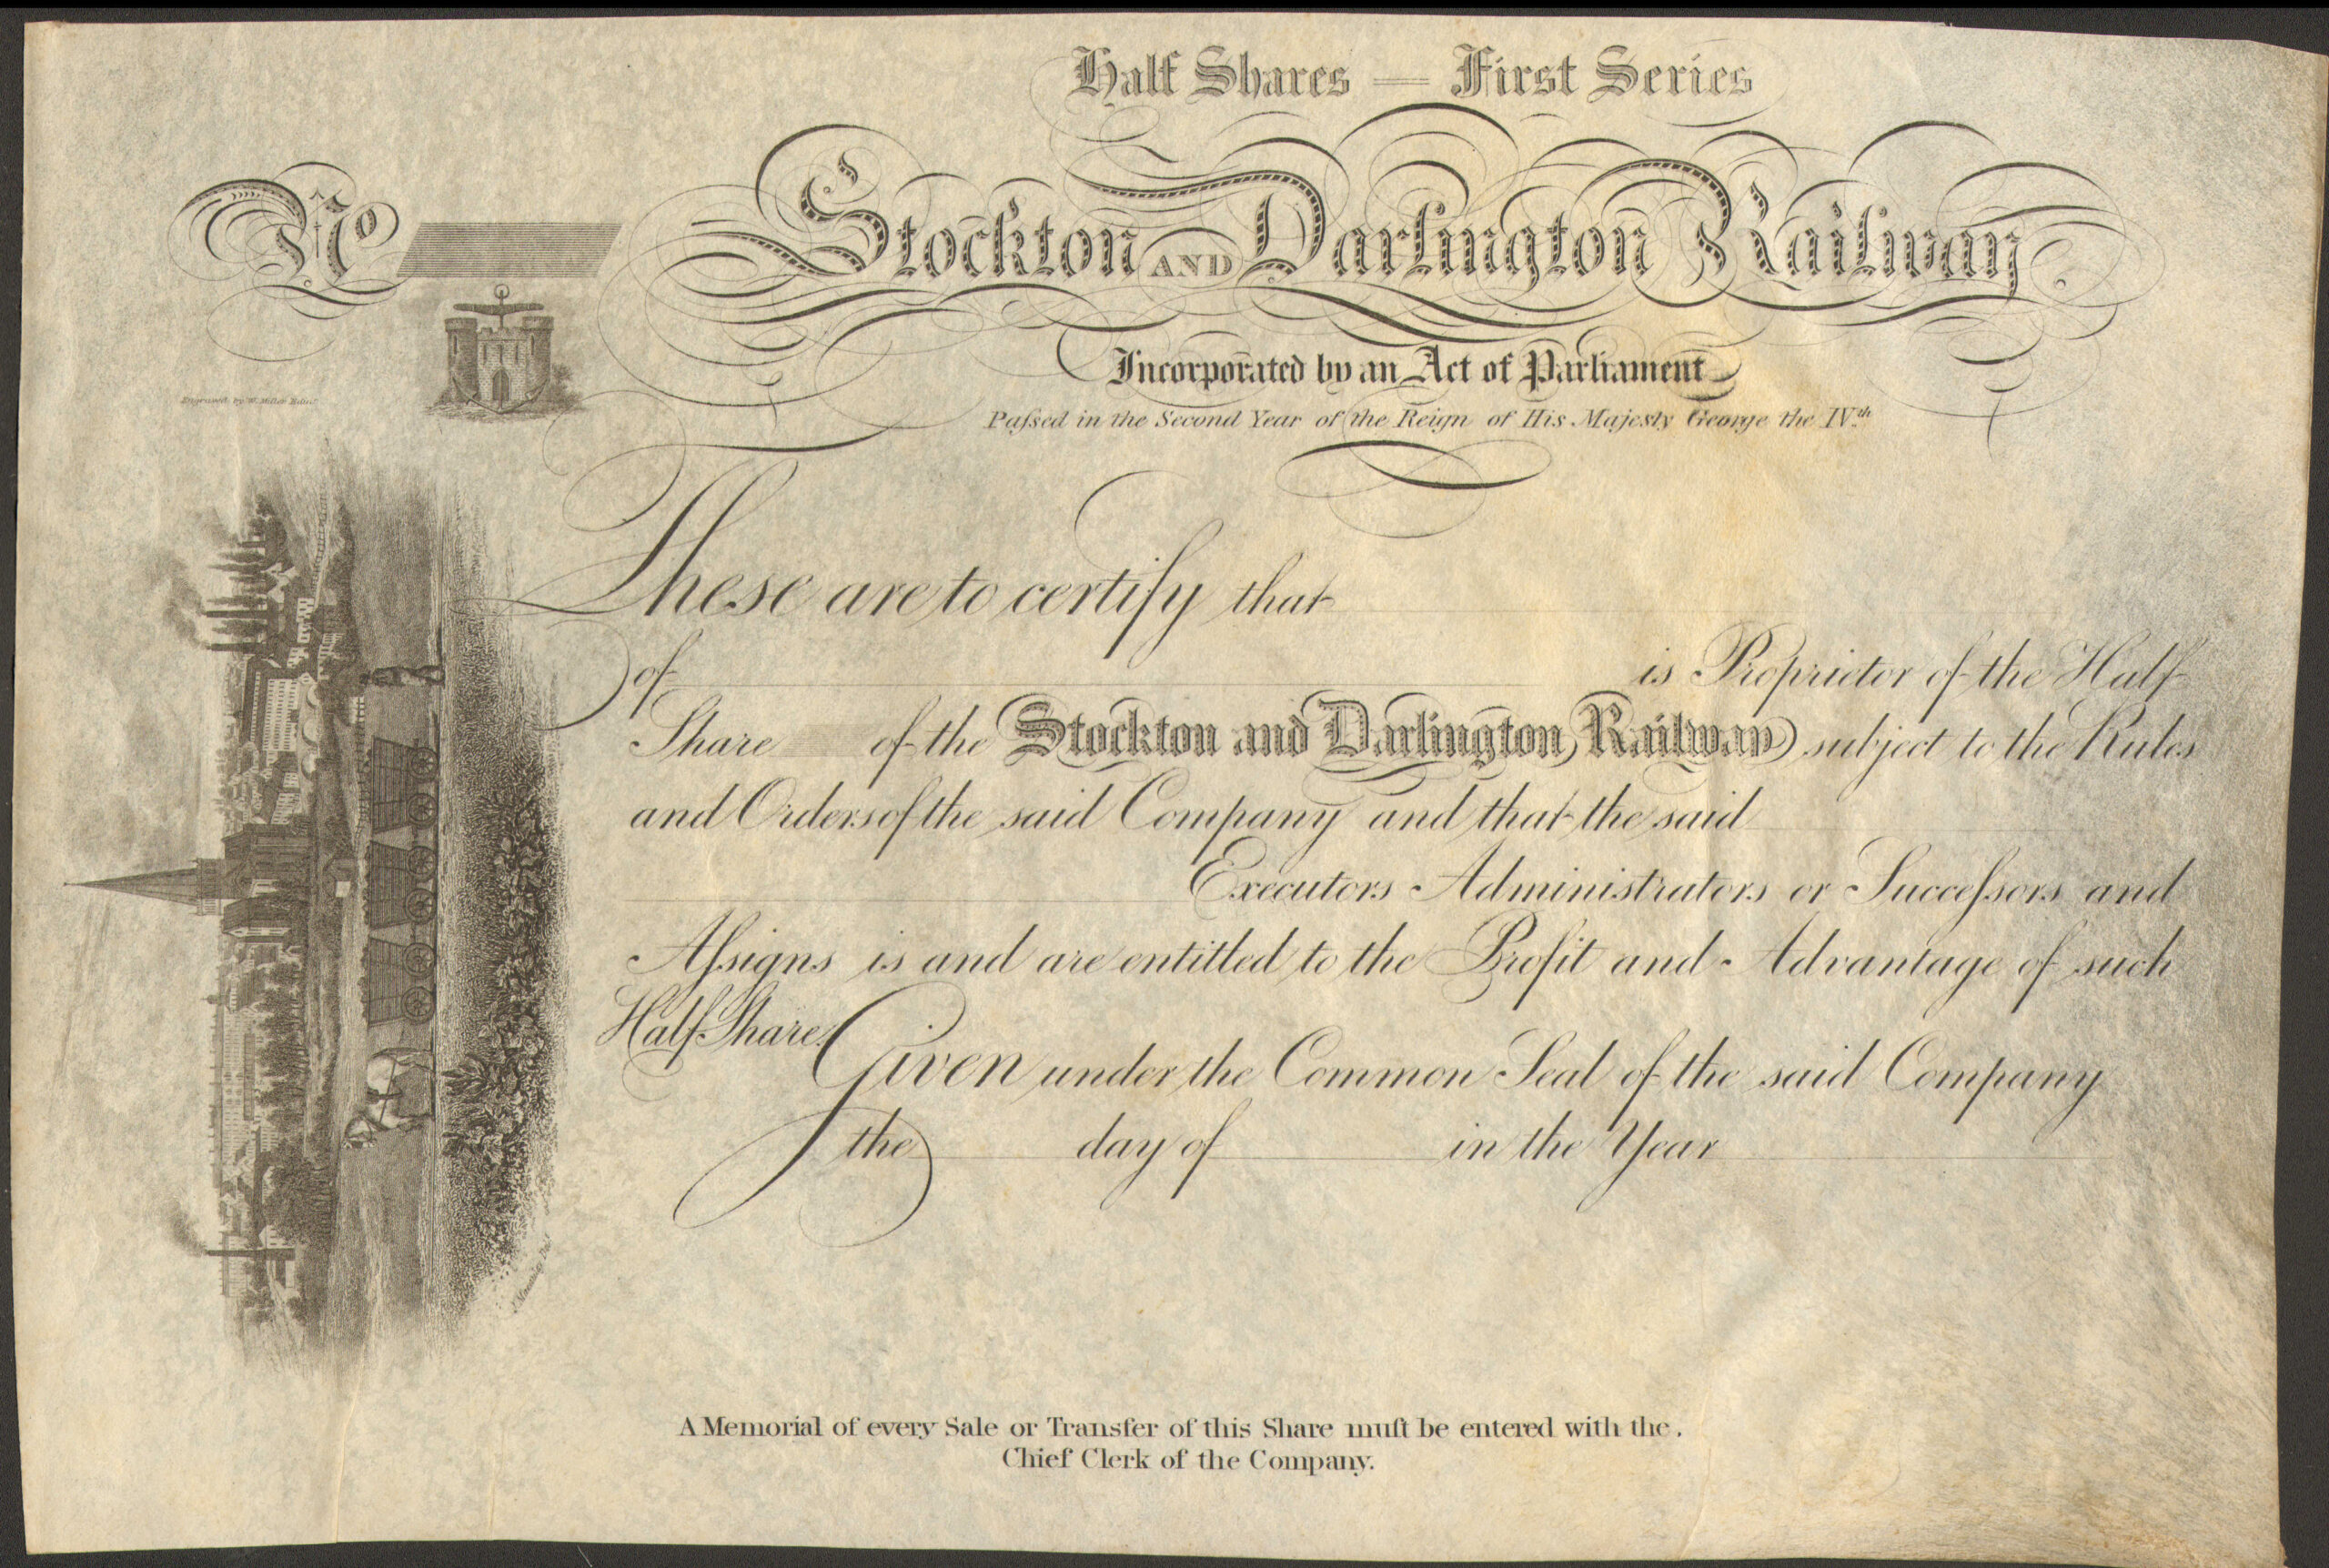 Half Shares — First Series
No
Stockton AND Darlington Railway.
Incorporated by an Act of Parliament
Paſsed in the Second Year of the Reign of His Majesty George the IVth
Engraved by W. Miller Edinr.
These are to certify that
of is Proprietor of the Half
Share of the Stockton and Darlington Railway subject to the Rules
and Orders of the said Company and that the said
Executors Administrators or Succeſsors and
Aſsigns is and are entitled to the Profit and Advantage of such
Half Share. Given under the Common Seal of the said Company
the day of in the Year
A Memorial of every Sale or Transfer of this Share muſt be entered with the.
Chief Clerk of the Company.